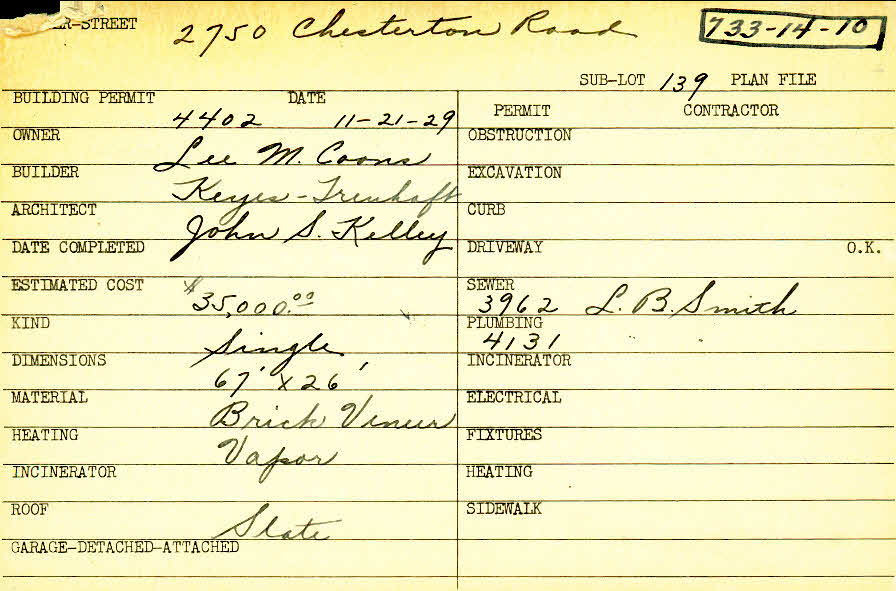 ER-STREET 2750 Chesterton Road 733-14-10
SUB-LOT 139 PLAN FILE
BUILDING PERMIT DATE
4402 11-21-29
PERMIT CONTRACTOR
OWNER Lee M. Coons
OBSTRUCTION
BUILDER Keyes-Treuhaft
EXCAVATION
ARCHITECT John S. Kelley
CURB
DATE COMPLETED
DRIVEWAY O.K.
ESTIMATED COST $35,000.00
SEWER 3962 L. B. Smith
KIND Single
PLUMBING 4131
DIMENSIONS 67' x 26'
INCINERATOR
MATERIAL Brick Vineer
ELECTRICAL
HEATING Vapor
FIXTURES
INCINERATOR
HEATING
ROOF Slate
SIDEWALK
GARAGE-DETACHED-ATTACHED